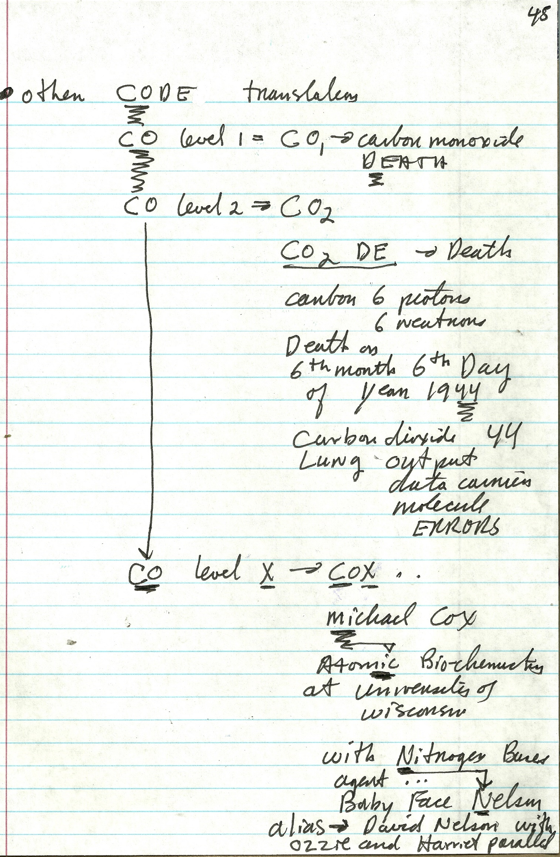 48
other CODE translations
CO level 1 = CO, → carbon monoxide
DEATH
CO level 2 ⇒ CO2
CO2 DE → Death
carbon 6 protons
6 neutrons
Death on
6th month 6th Day
of Year 1944
Carbon dioxide 44
Lung output
data carries
molecule
ERRORS
CO level X → COX ..
michael Cox
Atomic Biochemistry
at Universities of
wisconsin
with Nitrogen Bases
agent ...
Baby Face Nelson
alias → David Nelson with
Ozzie and Harriet parallel